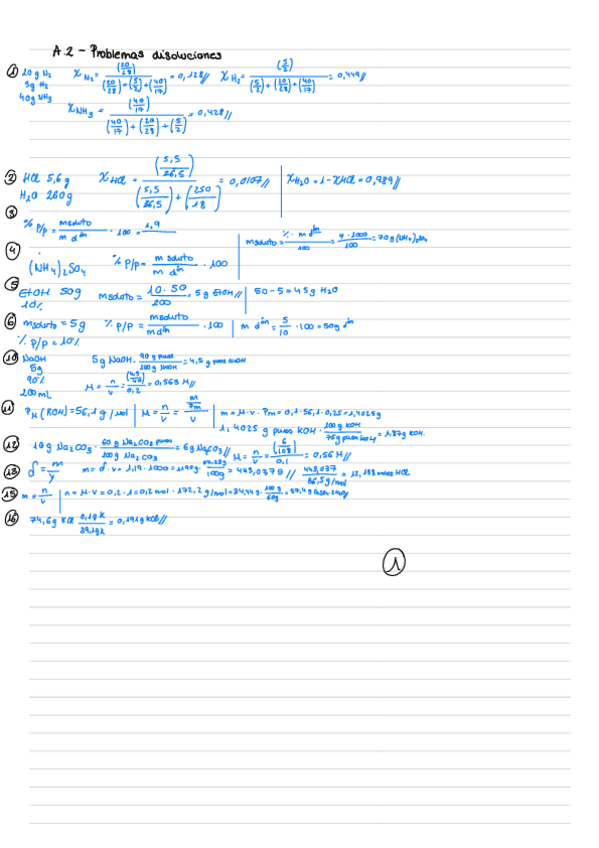 A.2 - Problemas disoluciones
① 20g N₂ χ N₂ = (20/28) / ((20/28)+(5/2)+(40/17)) = 0,128// χ H₂ = (5/2) / ((5/2)+(20/28)+(40/17)) = 0,449//
5g H₂
40g NH₃ χ NH₃ = (40/17) / ((40/17)+(20/28)+(5/2)) = 0,428//
② HCl 5,6g χ HCl = (5,5/36,5) / ((5,5/36,5)+(250/18)) = 0,0107// | χ H₂O = 1 - χ HCl = 0,989//
H₂O 260g
③
% P/P = msoluto / m dⁱⁿ · 100 = 1,9
④ (NH₄)₂SO₄ % P/P = m soluto / m dⁱⁿ · 100 | msoluto = %· m dⁱⁿ / 100 = 7·1000 / 100 = 70g (NH₄)₂SO₄
⑤ EtOH 50g msoluto = 10·50 / 200 = 5g EtOH// | 50-5=45g H₂O
10%
⑥ msoluto = 5g % P/P = msoluto / mdⁱⁿ · 100 | m dⁱⁿ = 5/10 · 100 = 50g dⁱⁿ
% P/P = 10%
⑩ NaOH 5g NaOH · 90 g puros / 100g NaOH = 4,5 g puros NaOH
5g
90% M = n/v = (4,5/40) / 0,2 = 0,563 M//
200mL
⑪ Pм (KOH) = 56,1 g/mol | M = n/v = (m/Pm) / v | m = M·v·Pm = 0,1·56,1·0,25 = 1,4025g
1,4025 g puros KOH · 100g KOH / 75g puros KOH = 1,87g KOH.
⑫ 10g Na₂CO₃ · 60g Na₂CO₃ puros / 100g Na₂CO₃ = 6g Na₂CO₃// M = n/v = (6/108) / 0,1 = 0,56 M//
⑬ δ = m/v m = δ·v = 1,19·1000 = 1190g · / 100g = 443,037g // 443,037 / 36,5g/mol = 12,138 moles HCl
⑮ m = n/v | n = M·v = 0,2·1 = 0,2 mol · 172,2 g/mol = 34,44g · 100g / 60g = 57,4g
⑯ 74,6g KCl 0,1g K / 39,1g K = 0,191g KCl//
①